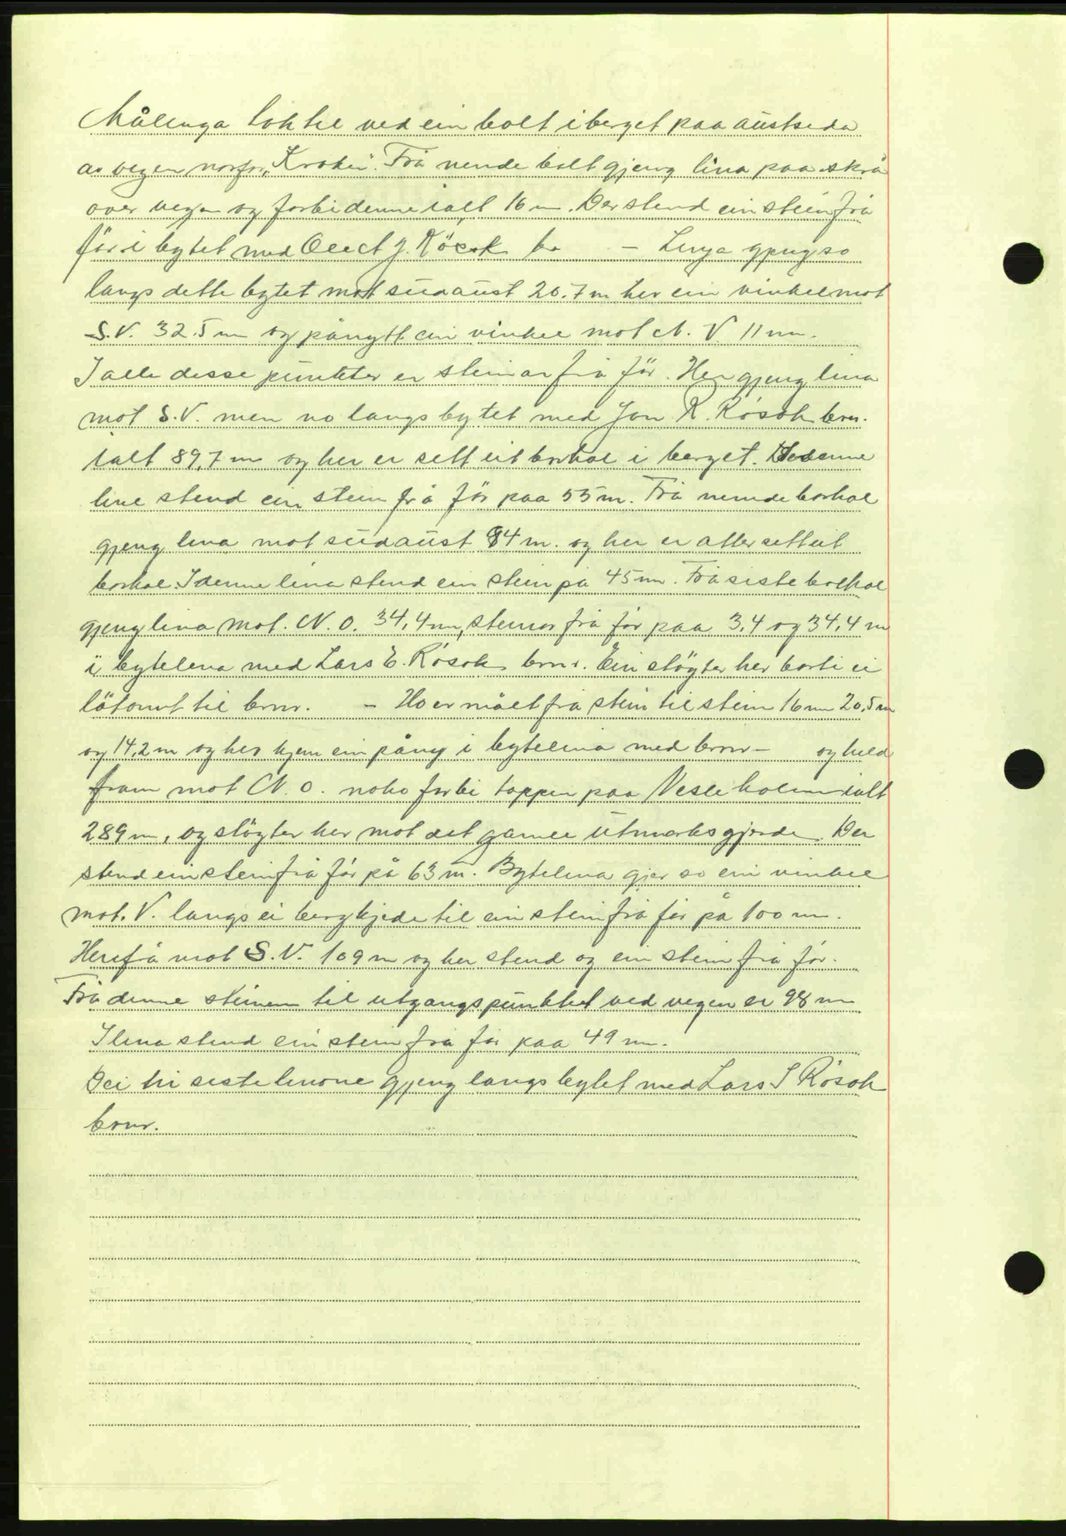 Målinga tok til ved ein bolt i berget paa austsida
av vegen norfor "Kroken". Frå nemde bolt gjeng lina paa skrå
over vegen og forbi denne ialt 16 m. Der stend ein stein frå
för i bytet med J. Rösok br — Linja gjeng so
langs dette bytet mot sudaust 20.7 m her ein vinkel mot
S.V. 32.5 m og pånytt ein vinkel mot N. V 11 m.
I alle desse punkter er steinar frå för. Her gjeng lina
mot S.V. men no langs bytet med Jon R. Rösok brnr.
ialt 89,7 m og her er sett eit borhol i berget. I denne
line stend ein stein frå för paa 55 m. Frå nemde borhol
gjeng lina mot sudaust 84 m. og her er atter sett eit
borhol. I denne lina stend ein stein på 45 m. Frå siste borhol
gjeng lina mot. N. O. 34,4 m, steinar frå för paa 3,4 og 34,4 m
i bytelina med Lars E. Rösok brnr. Ein slögter her borti ei
til brnr. — Ho er målt frå stein til stein 16 m 20,5 m
og 14,2 m og her kjem ein påny i bytelina med brnr — og held
fram mot N. O. noko forbi toppen paa Vesleholmen ialt
289 m, og slögter her mot det gamle utmarksgjerde. Der
stend ein stein frå för på 63 m. Bytelina gjer so ein vinkel
mot. V. langs ei bergkjede til ein stein frå för på 100 m.
Herifrå mot S.V. 109 m og her stend og ein stein frå för.
Frå denne steinen til utgangspunktet ved vegen er 98 m
I lina stend ein stein frå för paa 49 m.
Dei tri siste linone gjeng langs bytet med Lars S Rösok
brnr.